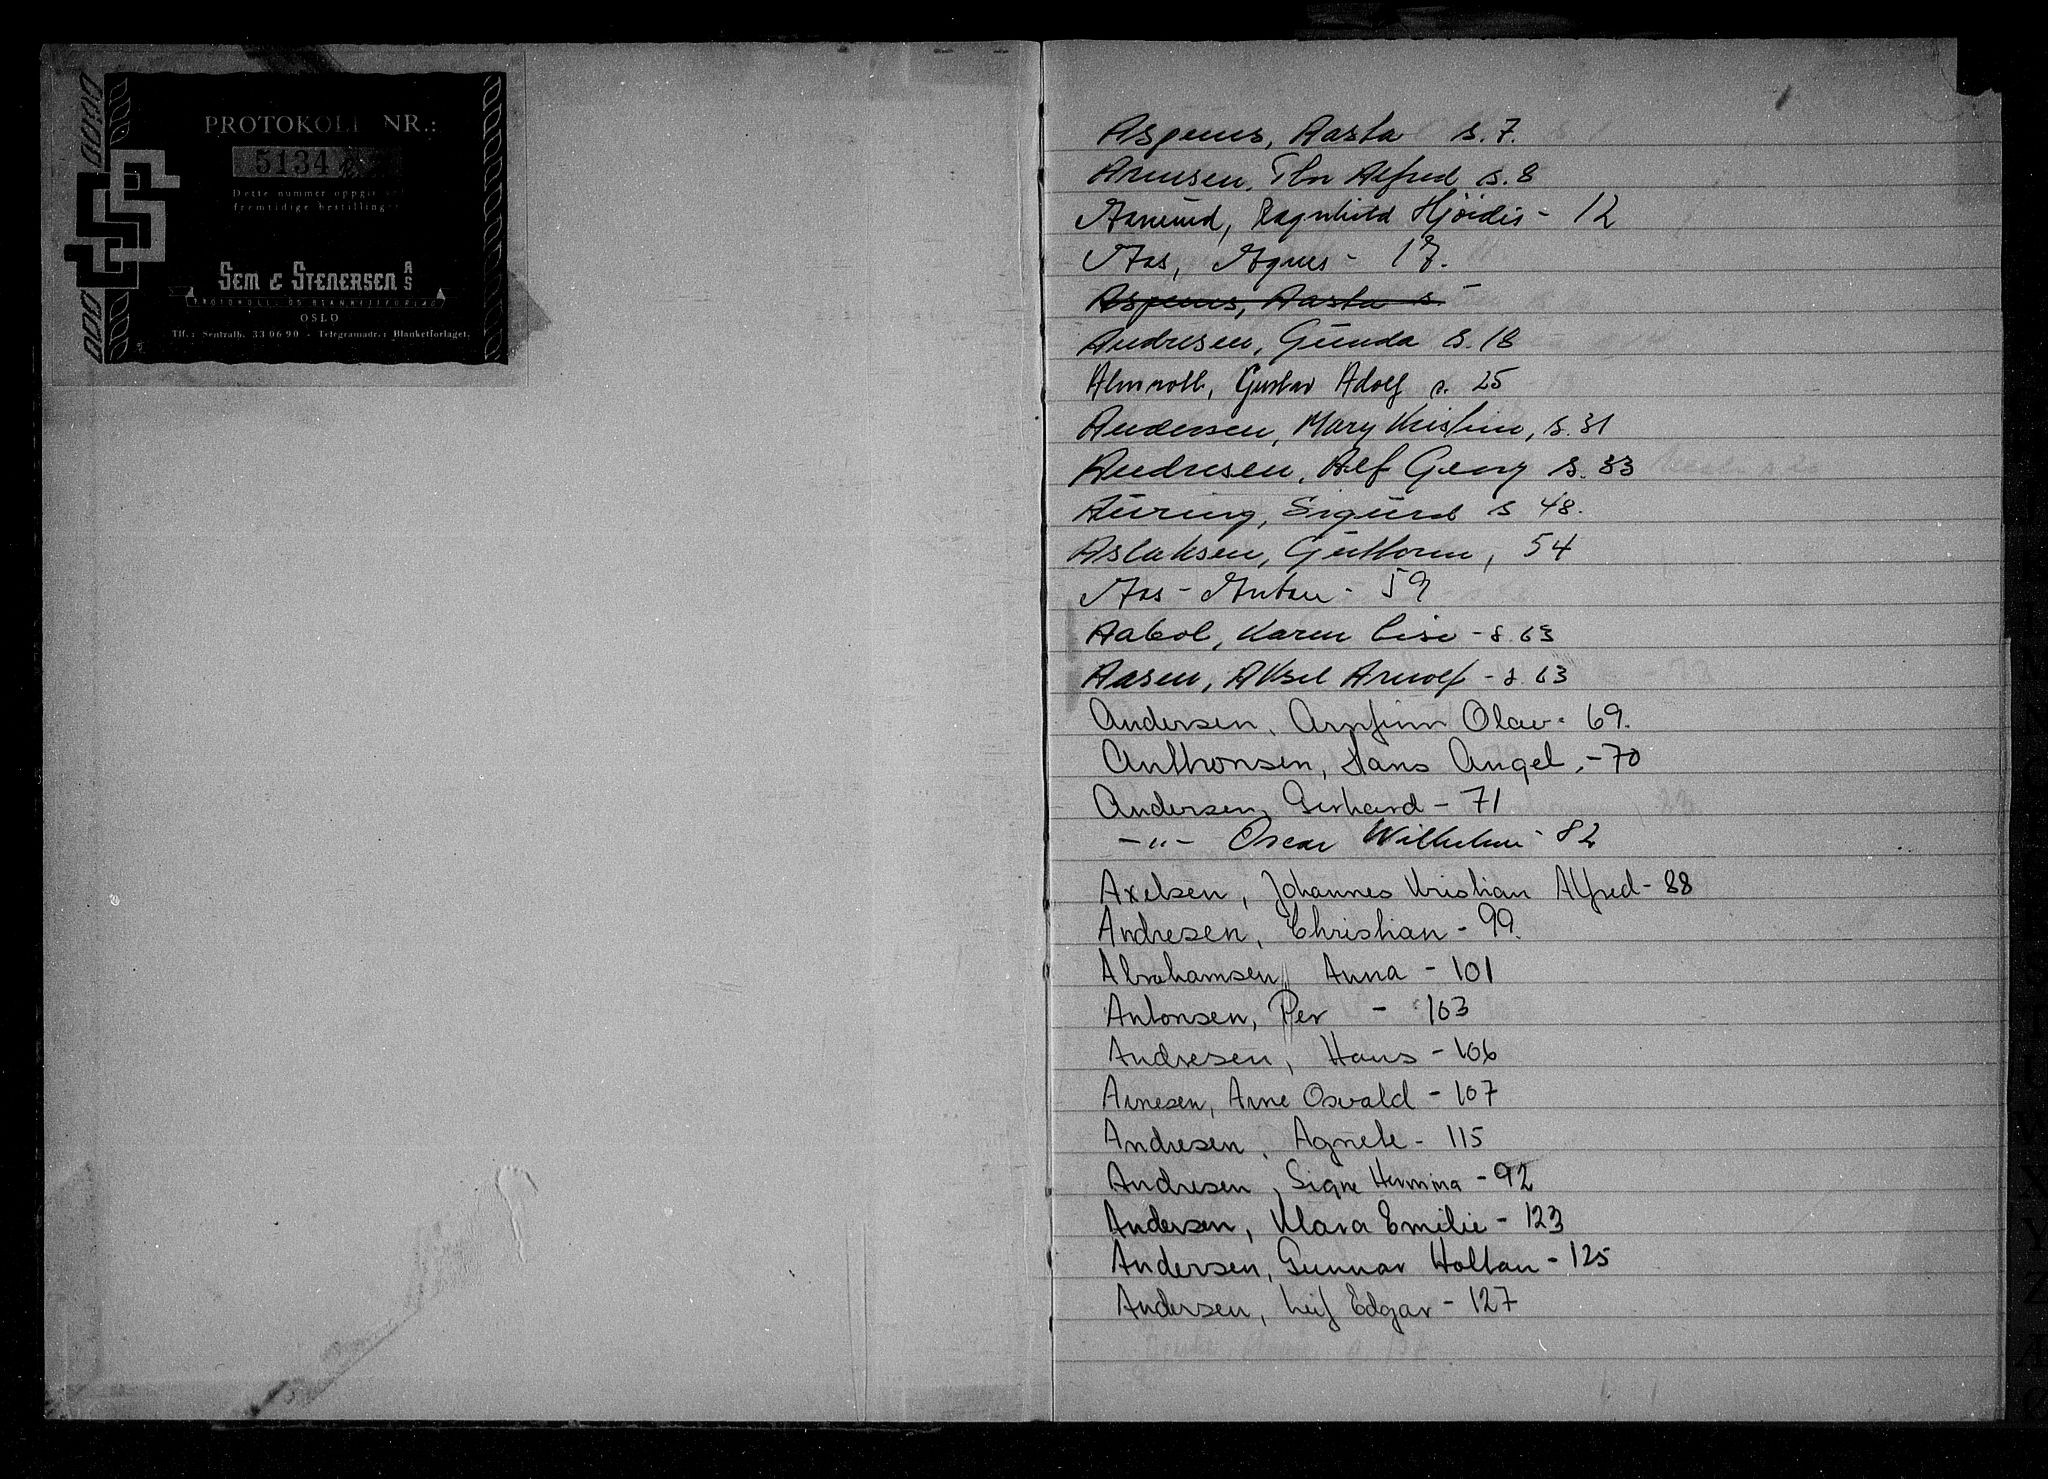 PROTOKOLL NR.:
5134
Dette nummer oppgis ved
fremtidige bestillinger
SEM & STENERSEN A/S
PROTOKOLL- OG BLANKETTFORLAG
OSLO
Tlf.: Sentralb. 33 06 90 - Telegramadr.: Blanketforlaget.
Aspenes, Aasta s. 7.
Arnesen, Thor Alfred s. 8
Ragnhild Hjördis - 12
Aas, Agnes - 17.
Aspenes, Aasta s.
Andresen, Gunda s. 18
Almroth, Gustav Adolf s. 25
Andersen, Mary Kristine, s. 31
Andresen, Alf Georg s. 33
Auring, Sigurd s 48.
Aslaksen, Guthorm, 54
Aas - Anton - 59
Aabol, Karen Lise - s. 63
Aasen, Aksel Arnolf - s. 63
Andersen, Arnfinn Olav - 69.
Anthonsen, Hans Angel, - 70
Andersen, Gerhard - 71
- " - Oscar Wilhelm - 82
Axelsen, Johannes Kristian Alfred - 88
Andresen, Christian - 99.
Abrahamsen, Anna - 101
Antonsen, Per - 103
Andresen, Hans - 106
Arnesen, Arne Osvald - 107
Andresen, Agnete - 115
Andresen, Signe Hermina - 92
Andersen, Klara Emilie - 123
Andersen, Gunnar Holtan - 125
Andersen, Leif Edgar - 127